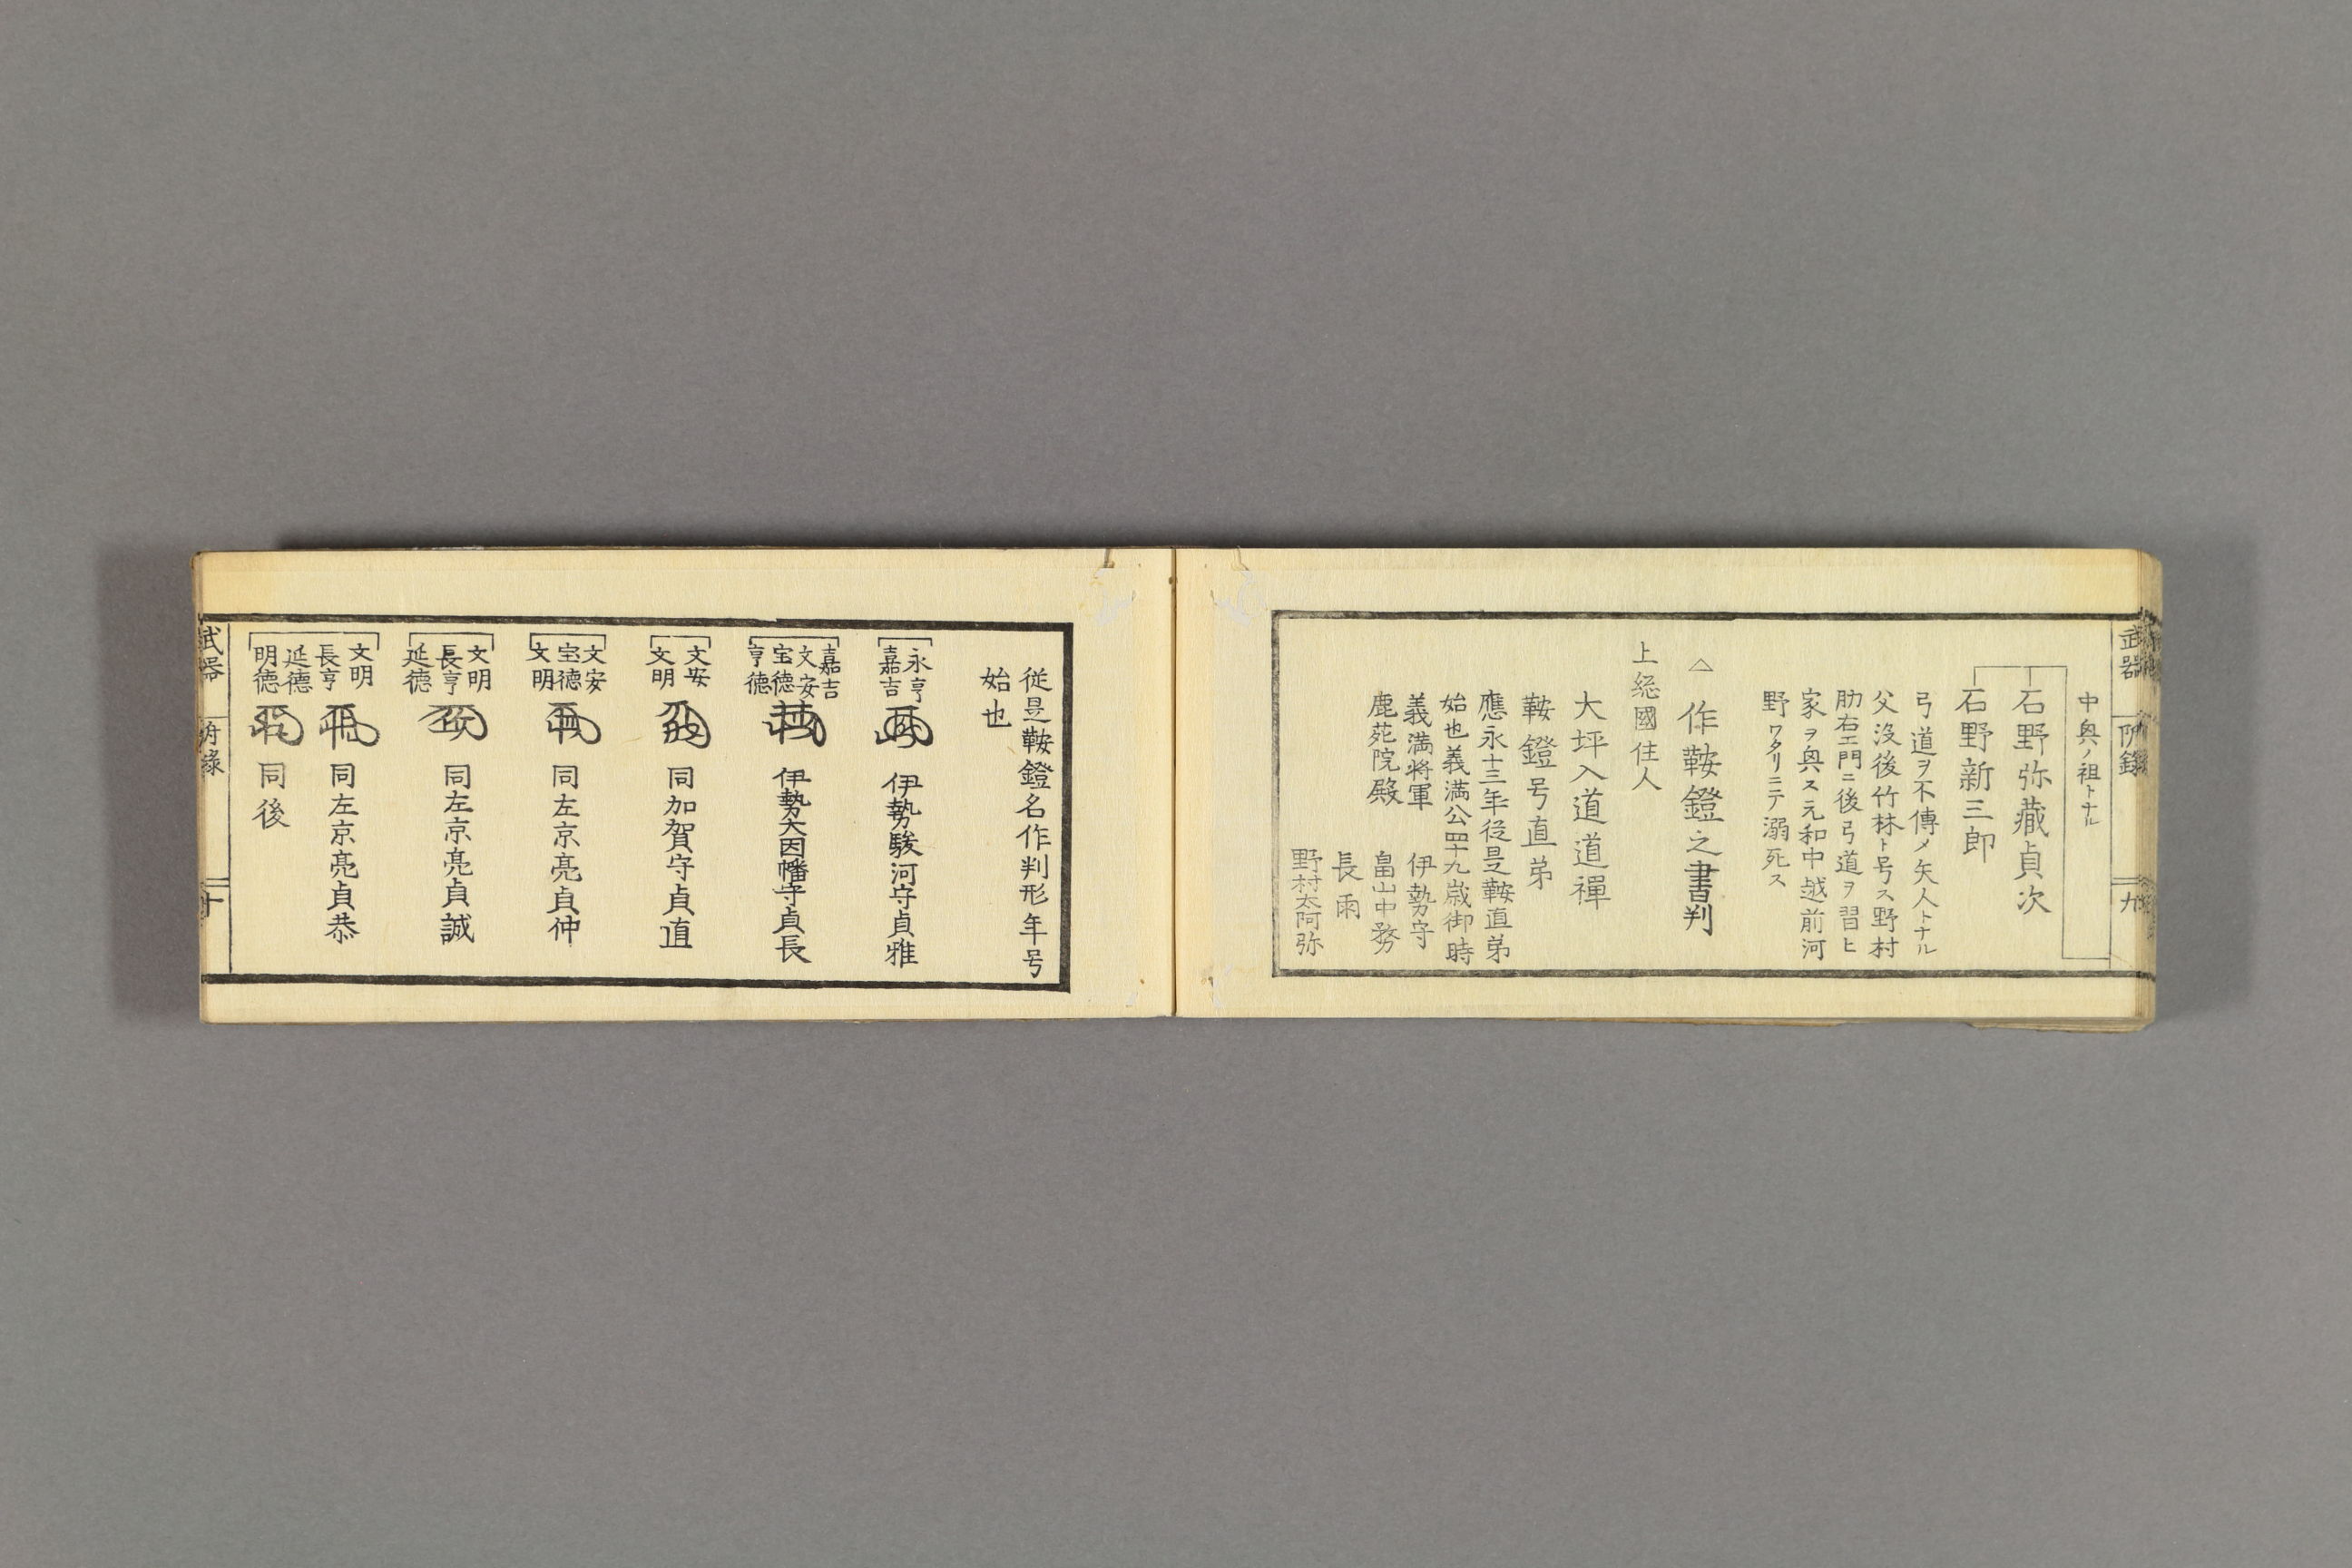 武器
附録
九
中興ノ祖トナル
石野弥蔵貞次
石野新三郎
弓道ヲ不傳〆矢人トナル
父没後竹林ト号ス野村
肋右エ門ニ後弓道ヲ習ヒ
家ヲ興ス元和中越前河
野ワタリニテ溺死ス
△作鞍鐙之書判
上総國住人
大坪入道道禅
鞍鐙号直弟
應永十三年従是鞍直弟
始也義満公四十九歳御時
義満将軍 伊勢守
鹿苑院殿 畠山中務
長雨
野村太阿弥
従是鞍鐙名作判形年号
始也
永亨
嘉吉
伊勢駿河守貞雅
嘉吉
文安
宝德
亨德
伊勢大因幡守貞長
文安
文明
同加賀守貞直
文安
宝德
文明
同左京亮貞仲
文明
長亨
延德
同左京亮貞誠
文明
長亨
同左京亮貞恭
延德
明德
同後
武器
附録
十